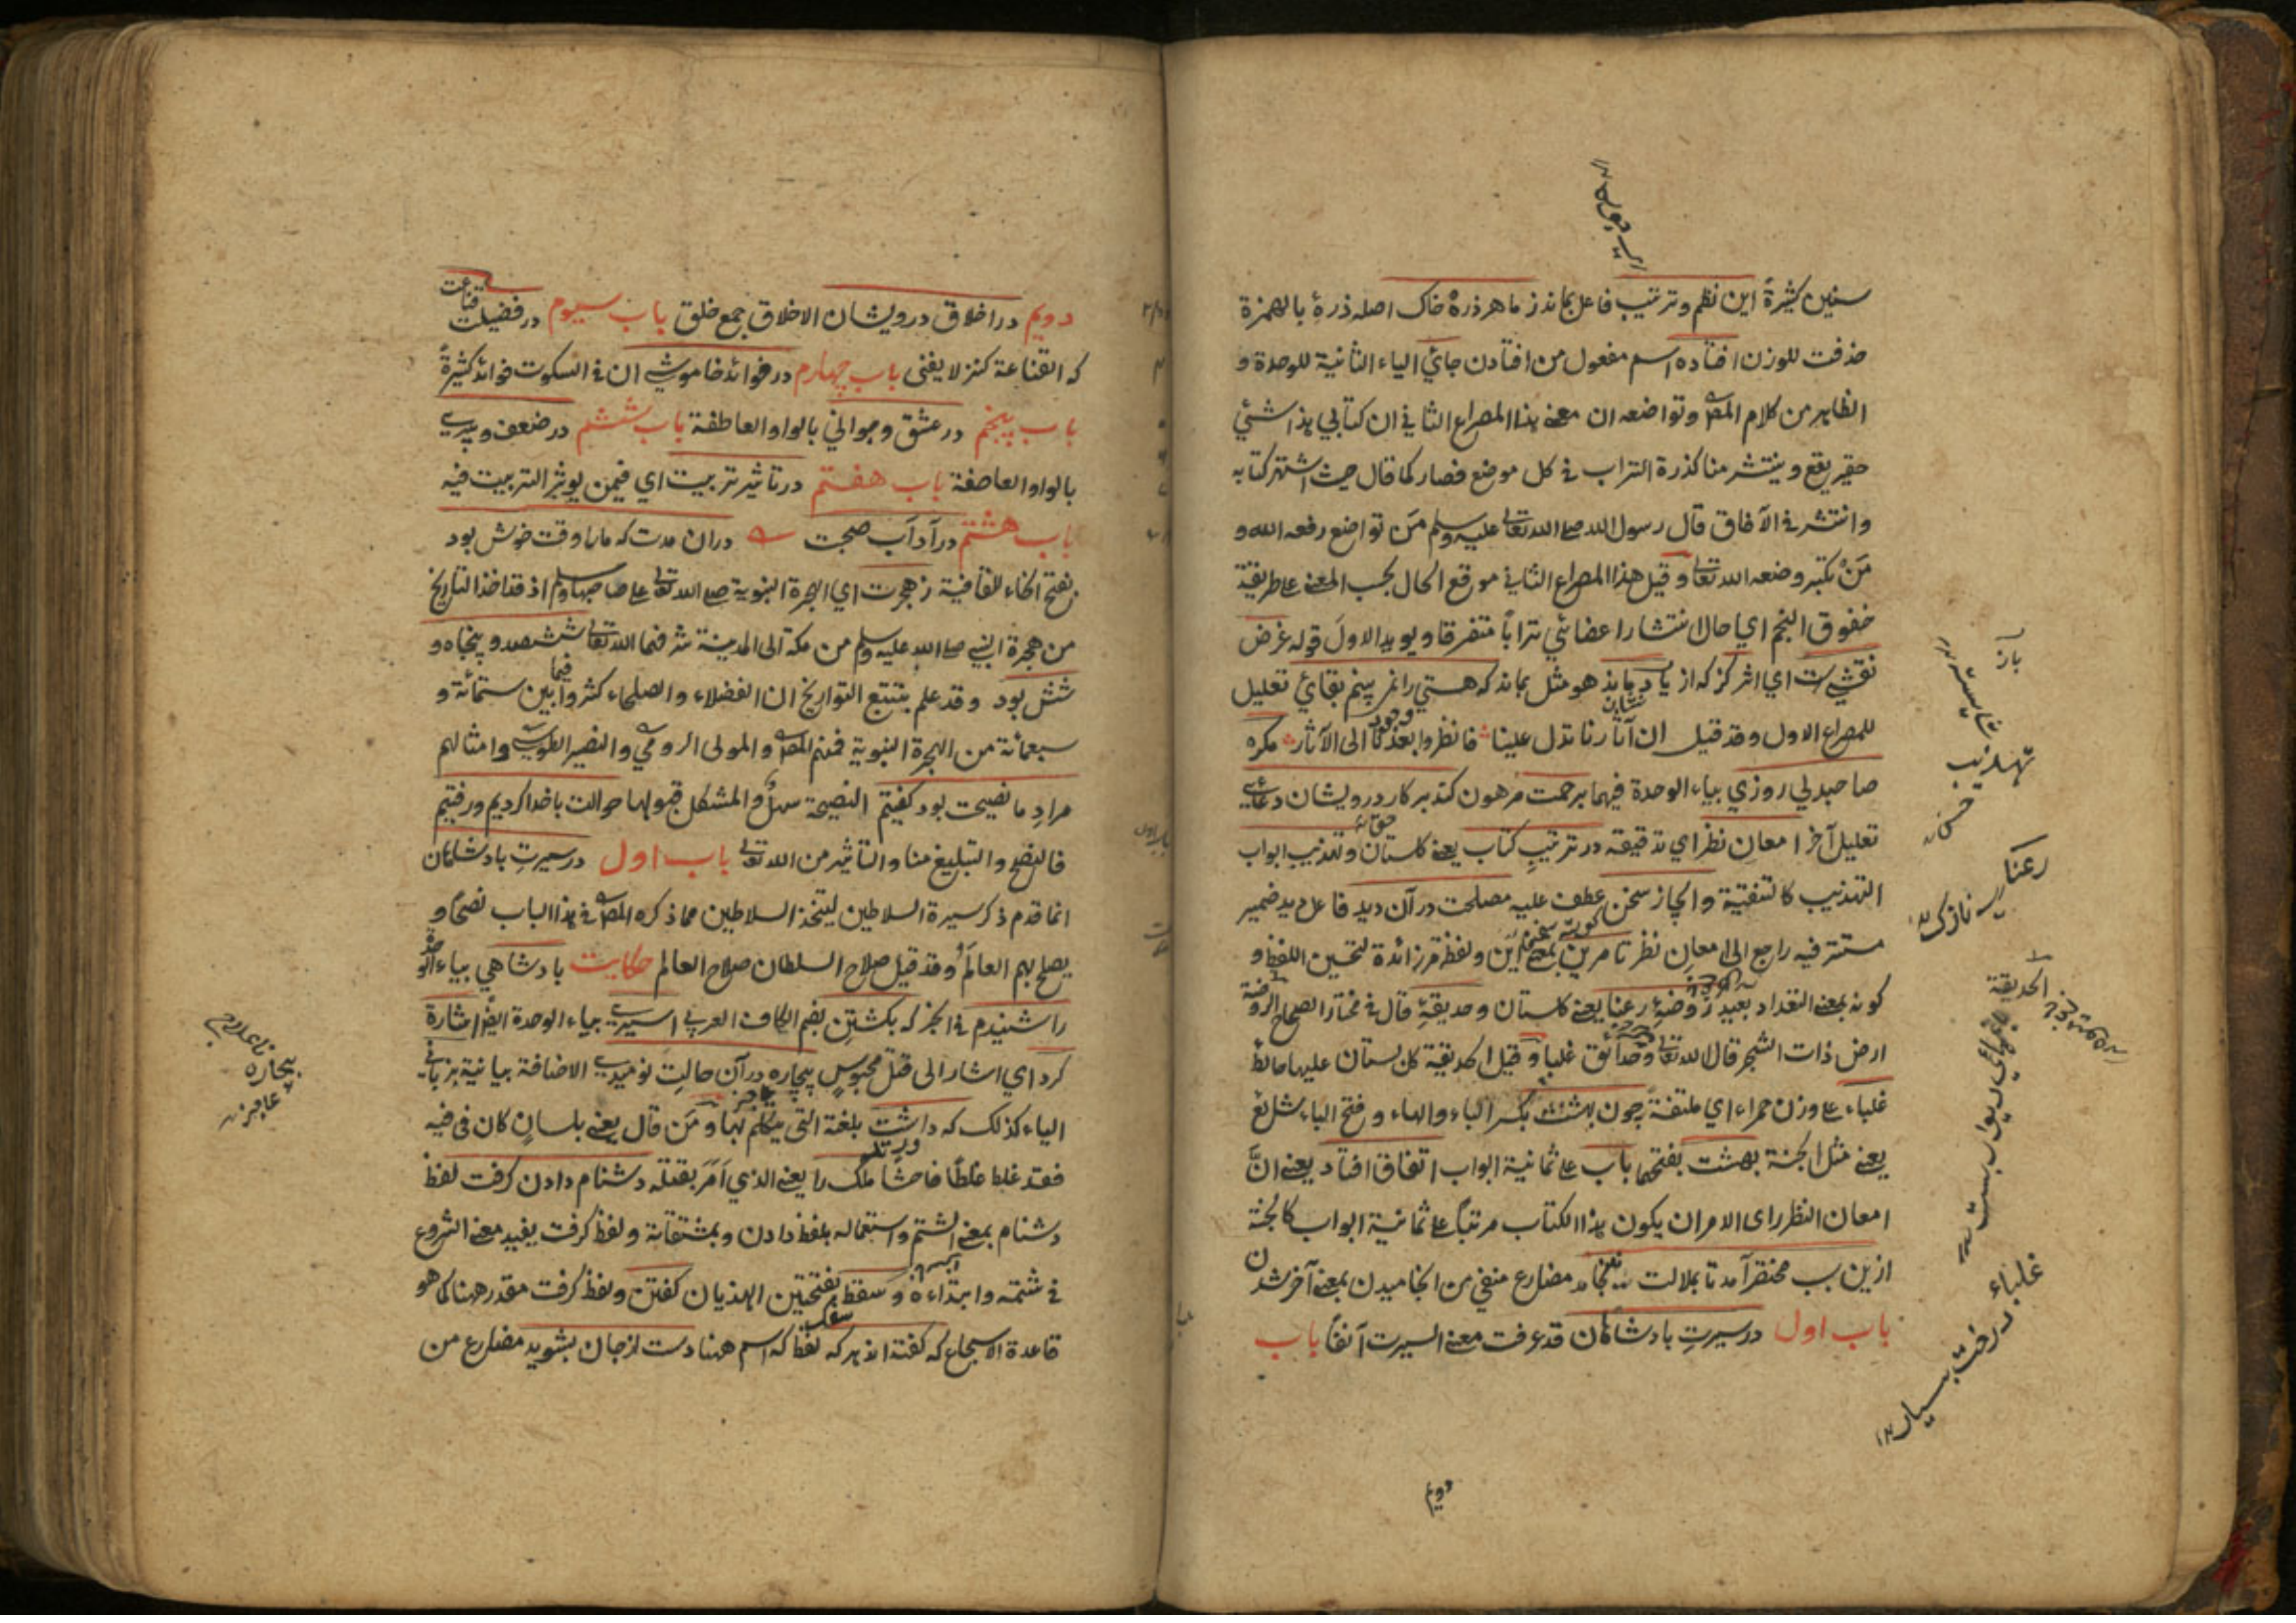 سنین کثیرةً این نظم و ترتیب فاعل بماند ز ما هر ذرهٔ خاک اصله ذرهٔ بالهمزة
حذفت للوزن افتاده اسم مفعول من افتادن جائی الیاء الثانیة للوحدة و
الظاهر من کلام المص وتواضعه ان معنے هذا المصراع الثانی ان کتابی هذا شئی
حقیر یقع وینتشر منا کذرة التراب فی کل موضع فصار کما قال حیث اشتهر کتابه
وانتشر فی الآفاق قال رسول الله صلے الله تعالی علیه وسلم مَن تواضع رفعه الله و
مَنْ تکبّر وضعه الله تعالی وقیل هذا المصراع الثانی موقع الحال بحسب المعنے علی طریقة
خفوق النجم ای حال انتشار اعضائی تراباً متفرقا ویوید الاول قوله غرض
نقشی ست ای اثر کز که از یاد بماند هو مثل بماند که هستی را نمی بینم بقائی تعلیل
للمصراع الاول وقد قیل ان آثارنا تدل علینا فانظروا بعدنا الی الآثار مگر
صاحبدلی روزی بیاء الوحدة فیهما برحمت مرهون کند بر کار درویشان دعائے
تعلیل آخر امعان نظر ای تدقیقه در ترتیب کتاب یعنے گلستان وتهذیب ابواب
التهذیب کالتنقیة وایجاز سخن عطف علیه مصلحت در آن دید فاعل دید ضمیر
مستتر فیه راجع الی امعان نظر تا مر این بمعنے این ولفظ مر زائدة لتحسین اللفظ و
کونه بمعنے التعداد بعید روضهٔ رعنا یعنے گلستان وحدیقهٔ قال فی مختار الصحاح الروضة
ارض ذات الشجر قال الله تعالی وحدائق غلبا وقیل الحدیقة کل بستان علیها حائط
غلباء علی وزن حمراء ای ملتفة چون بهشت بکسر الباء والهاء وفتح الباء شائع
یعنے مثل الجنة بهشت بفتحهما باب علی ثمانیة ابواب اتفاق افتاد یعنے انّ
امعان النظر رای الامر ان یکون هذا الکتاب مرتبًا علی ثمانیة ابواب کالجنة
ازین سبب مختصر آمد تا بملالت نینجامد مضارع منفی من انجامیدن بمعنے آخر شدن
باب اول در سیرتِ بادشاهان قد عرفت معنے السیرت آنفاً باب
دویم
باز
تهذیب
رعنا
نازک
الحدیقة
غلباء
درخت بسیار ١٢
دویم در اخلاق درویشان الاخلاق جمع خلق باب سیوم در فضیلت قناعت
که القناعة کنز لا یفنی باب چهارم در فوائد خاموشی ان فی السکوت فوائد کثیرةً
باب پنجم در عشق وجوانی بالواو العاطفة باب ششم در ضعف و پیری
بالواو العاطفة باب هفتم در تاثیر تربیت ای فیمن یوثر التربیت فیه
باب هشتم در آداب صحبت دران مدت که مارا وقت خوش بود
بفتح الخاء للقافیة ز هجرت ای الهجرة النبویة صلے الله تعالی علی صاحبها وسلم اذ قد اخذ التاریخ
من هجرة النبی صلے الله علیه وسلم من مکة الی المدینة شرفها الله تعالی ششصد و پنجاه و
شش بود وقد علم بتتبع التواریخ ان الفضلاء والصلحاء کثروا فیما بین ستمائة و
سبعمائة من الهجرة النبویة فمنهم المص والمولی الرومی والنصیر الطوسی وامثالهم
مرادِ ما نصیحت بود گفتیم النصیحة سهل والمشکل قبولها حوالت با خدا کردیم و رفتیم
فالنصح والتبلیغ منا والتاثیر من الله تعالی باب اول در سیرتِ بادشاهان
انما قدم ذکر سیرة السلاطین لیتخذ السلاطین مما ذکره المص فی هذا الباب نصحًا و
یصلح بهم العالَمُ وقد قیل صلاح السلطان صلاح العالم حکایت بادشاهی بیاء الوحدة
را شنیدم فی الخبر که بکشتن بضم الکاف العربی اسیرے بیاء الوحدة ایضًا اشارة
کرد ای اشار الی قتل محبوس بیچاره در آن حالتِ نومیدی الاضافة بیانیة بزبانی
الیاء کذلک که داشت بلغة التی یتکلم بها ومَن قال یعنے بلسانٍ کان فی فیه
فقد غلط غلطًا فاحشًا ملک را یعنے الذی اَمَر بقتله دشنام دادن گرفت لفظ
دشنام بمعنے الشتم واستعماله بلفظ دادن وبمشتقاته ولفظ گرفت یفید معنے الشروع
فی شتمه وابتداءه و سقط بفتحتین الهذیان گفتن ولفظ گرفت مقدر هنا کما هو
قاعدة الاسجاع که گفته اند هر که لفظ که اسم هنا دست از جان بشوید مضارع من
بیچاره
عاجز